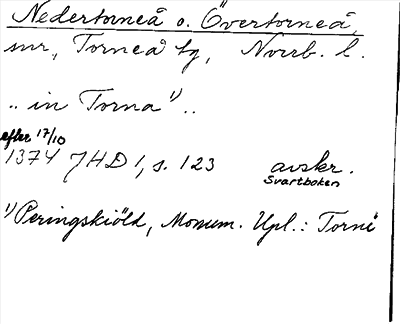 Nedertorneå o. Övertorneå,
snr, Torneå tg, Norrb. l.
.. in Torna¹⁾ ..
efter 17/10
1374 JHD 1, s. 123 avskr.
Svartboken
¹⁾ Peringskiöld, Monum. Upl.: Torni